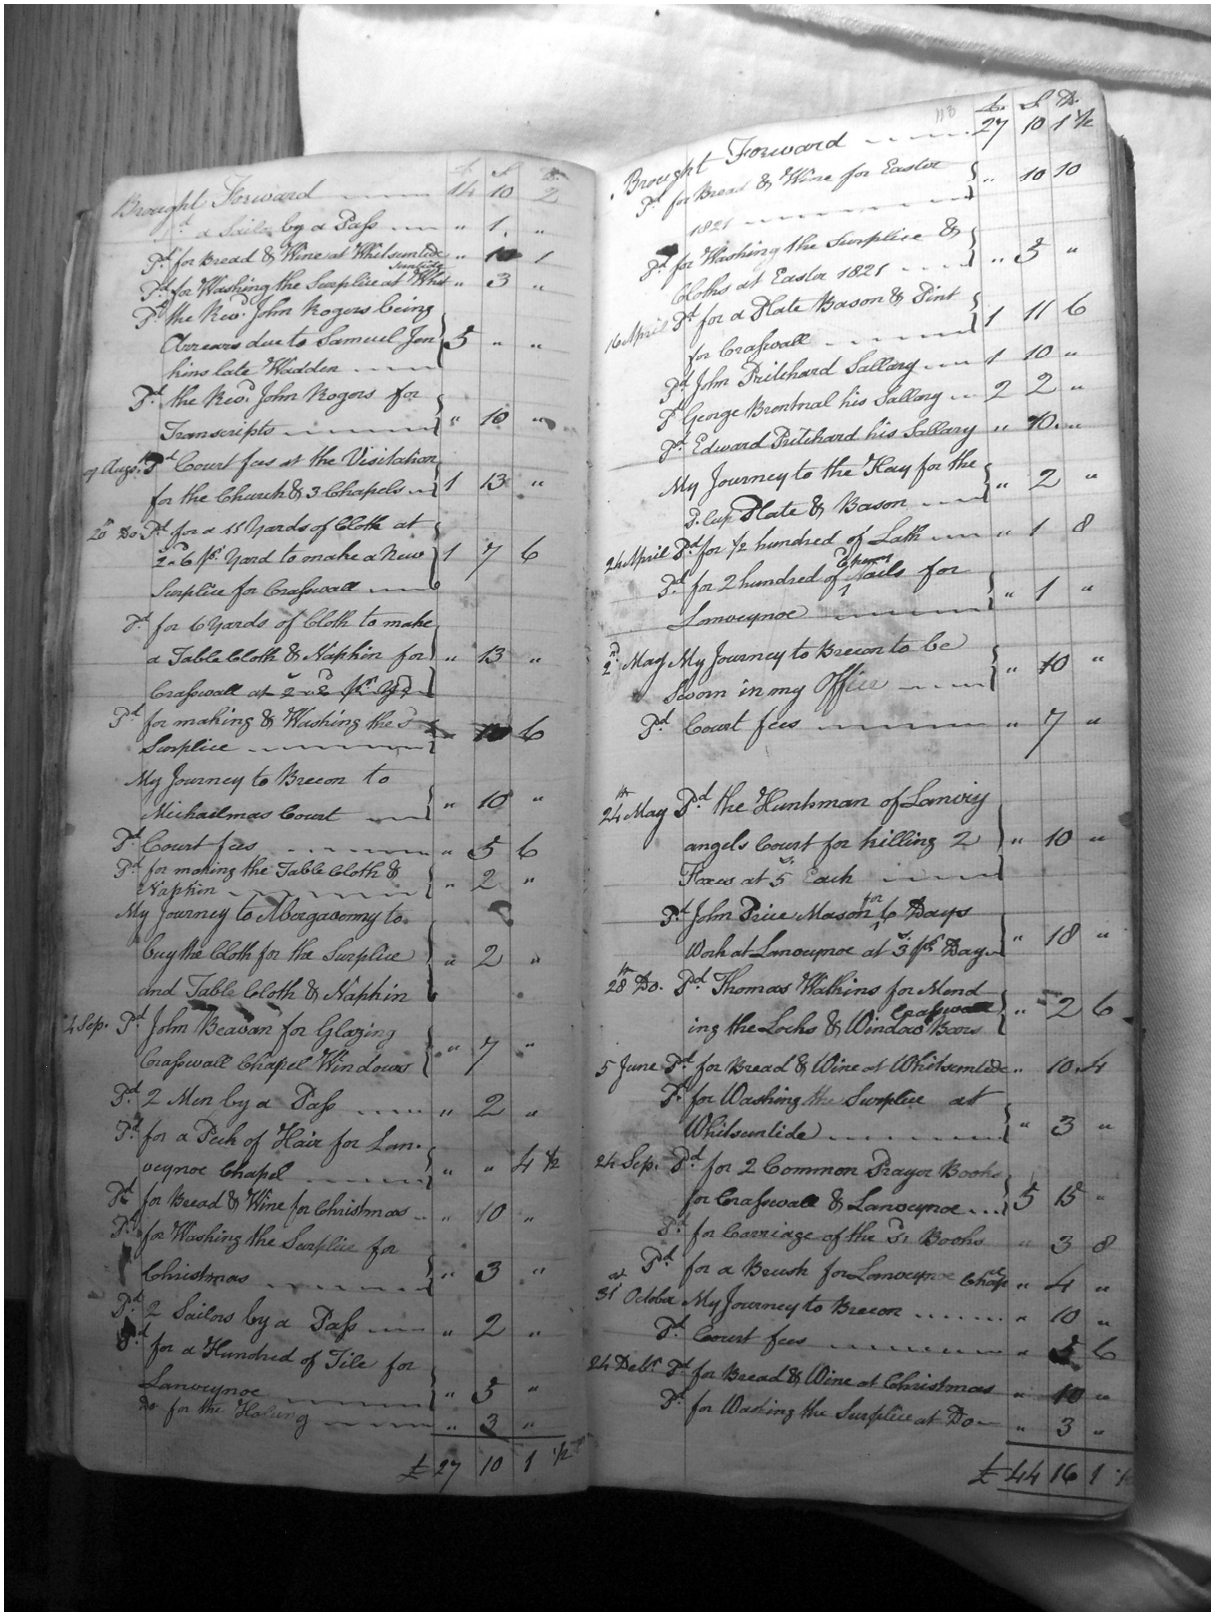 £ S D
Brought Forward 14 10 2
Pd a Sailor by a Pass " 1 "
Pd for Bread & Wine at Whitsuntide " 10 1
suntide
Pd for Washing the Surplice at Whit " 3 "
Pd the Revd John Rogers being
Arrears due to Samuel Jen 5 " "
kins late Warden
Pd the Revd John Rogers for
Transcripts " 10 "
9 Augst Pd Court fees at the Visitation
for the Church & 3 Chapels 1 13 "
20th Do Pd for a 11 Yards of Cloth at
2s 6d pr Yard to make a New 1 7 6
Surplice for Crasswall
Pd for 6 Yards of Cloth to make
a Table Cloth & Napkin for " 13 "
Crasswall at 2s 2d pr Yd
Pd for making & Washing the
Surplice 6
My Journey to Brecon to
Michailmas Court " 10 "
Pd Court fees " 5 6
Pd for making the Table Cloth &
Napkin " 2 "
My Journey to Abergavonny to
buy the Cloth for the Surplice " 2 "
and Table Cloth & Napkin
4 Sep. Pd John Beavan for Glazing
Crasswall Chapel Windows " 7 "
Pd 2 Men by a Pass " 2 "
Pd for a Peck of Hair for Lan-
veynoe Chapel " " 4 1/2
Pd for Bread & Wine for Christmas " 10 "
Pd for Washing the Surplice for
Christmas " 3 "
Pd 2 Sailors by a Pass " 2 "
Pd for a Hundred of Tile for
Lanveynoe " 5 "
Do for the " 3 "
£ 27 10 1 1/2
118
£. S. D.
Brought Forward 27 10 1 1/2
Pd for Bread & Wine for Easter
1821 " 10 10
Pd for Washing the Surplice &
Cloths at Easter 1821 " 5 "
16 April Pd for a Plate Bason & Pint
for Crasswall 1 11 6
Pd John Pritchard Sallary 1 10 "
Pd George Brontnal his Sallary 2 2 "
Pd Edward Pritchard his Sallary " 10 "
My Journey to the Hay for the
P. Cup Plate & Bason " 2 "
24 April Pd for 1/2 hundred of Lath " 1 8
Pd for 2 hundred of Nails for
Lanveynoe " 1 "
2d May My Journey to Brecon to be
Sworn in my Office " 10 "
Pd Court fees " 7 "
24th May Pd the Huntsman of Lanviy
angels Court for killing 2 " 10 "
Foxes at 5s Each
for
Pd John Price Mason 6 Days
Work at Lanveynoe at 3s pr Day " 18 "
28th Do. Pd Thomas Watkins for Mend
Crasswall
ing the Locks & Window Bars " 2 6
5 June Pd for Bread & Wine at Whitsuntide " 10 4
Pd for Washing the Surplice at
Whitsuntide " 3 "
24 Sep. Pd for 2 Common Prayer Books
for Crasswall & Lanveynoe 5 15 "
Pd for Carriage of the Sd Books " 3 8
Pd for a Brush for Lanveynoe Chap " 4 "
31st October My Journey to Brecon " 10 "
Pd Court fees " 5 6
24 Debr Pd for Bread & Wine at Christmas " 10 "
Pd for Washing the Surplice at Do " 3 "
£ 44 16 1 1/2